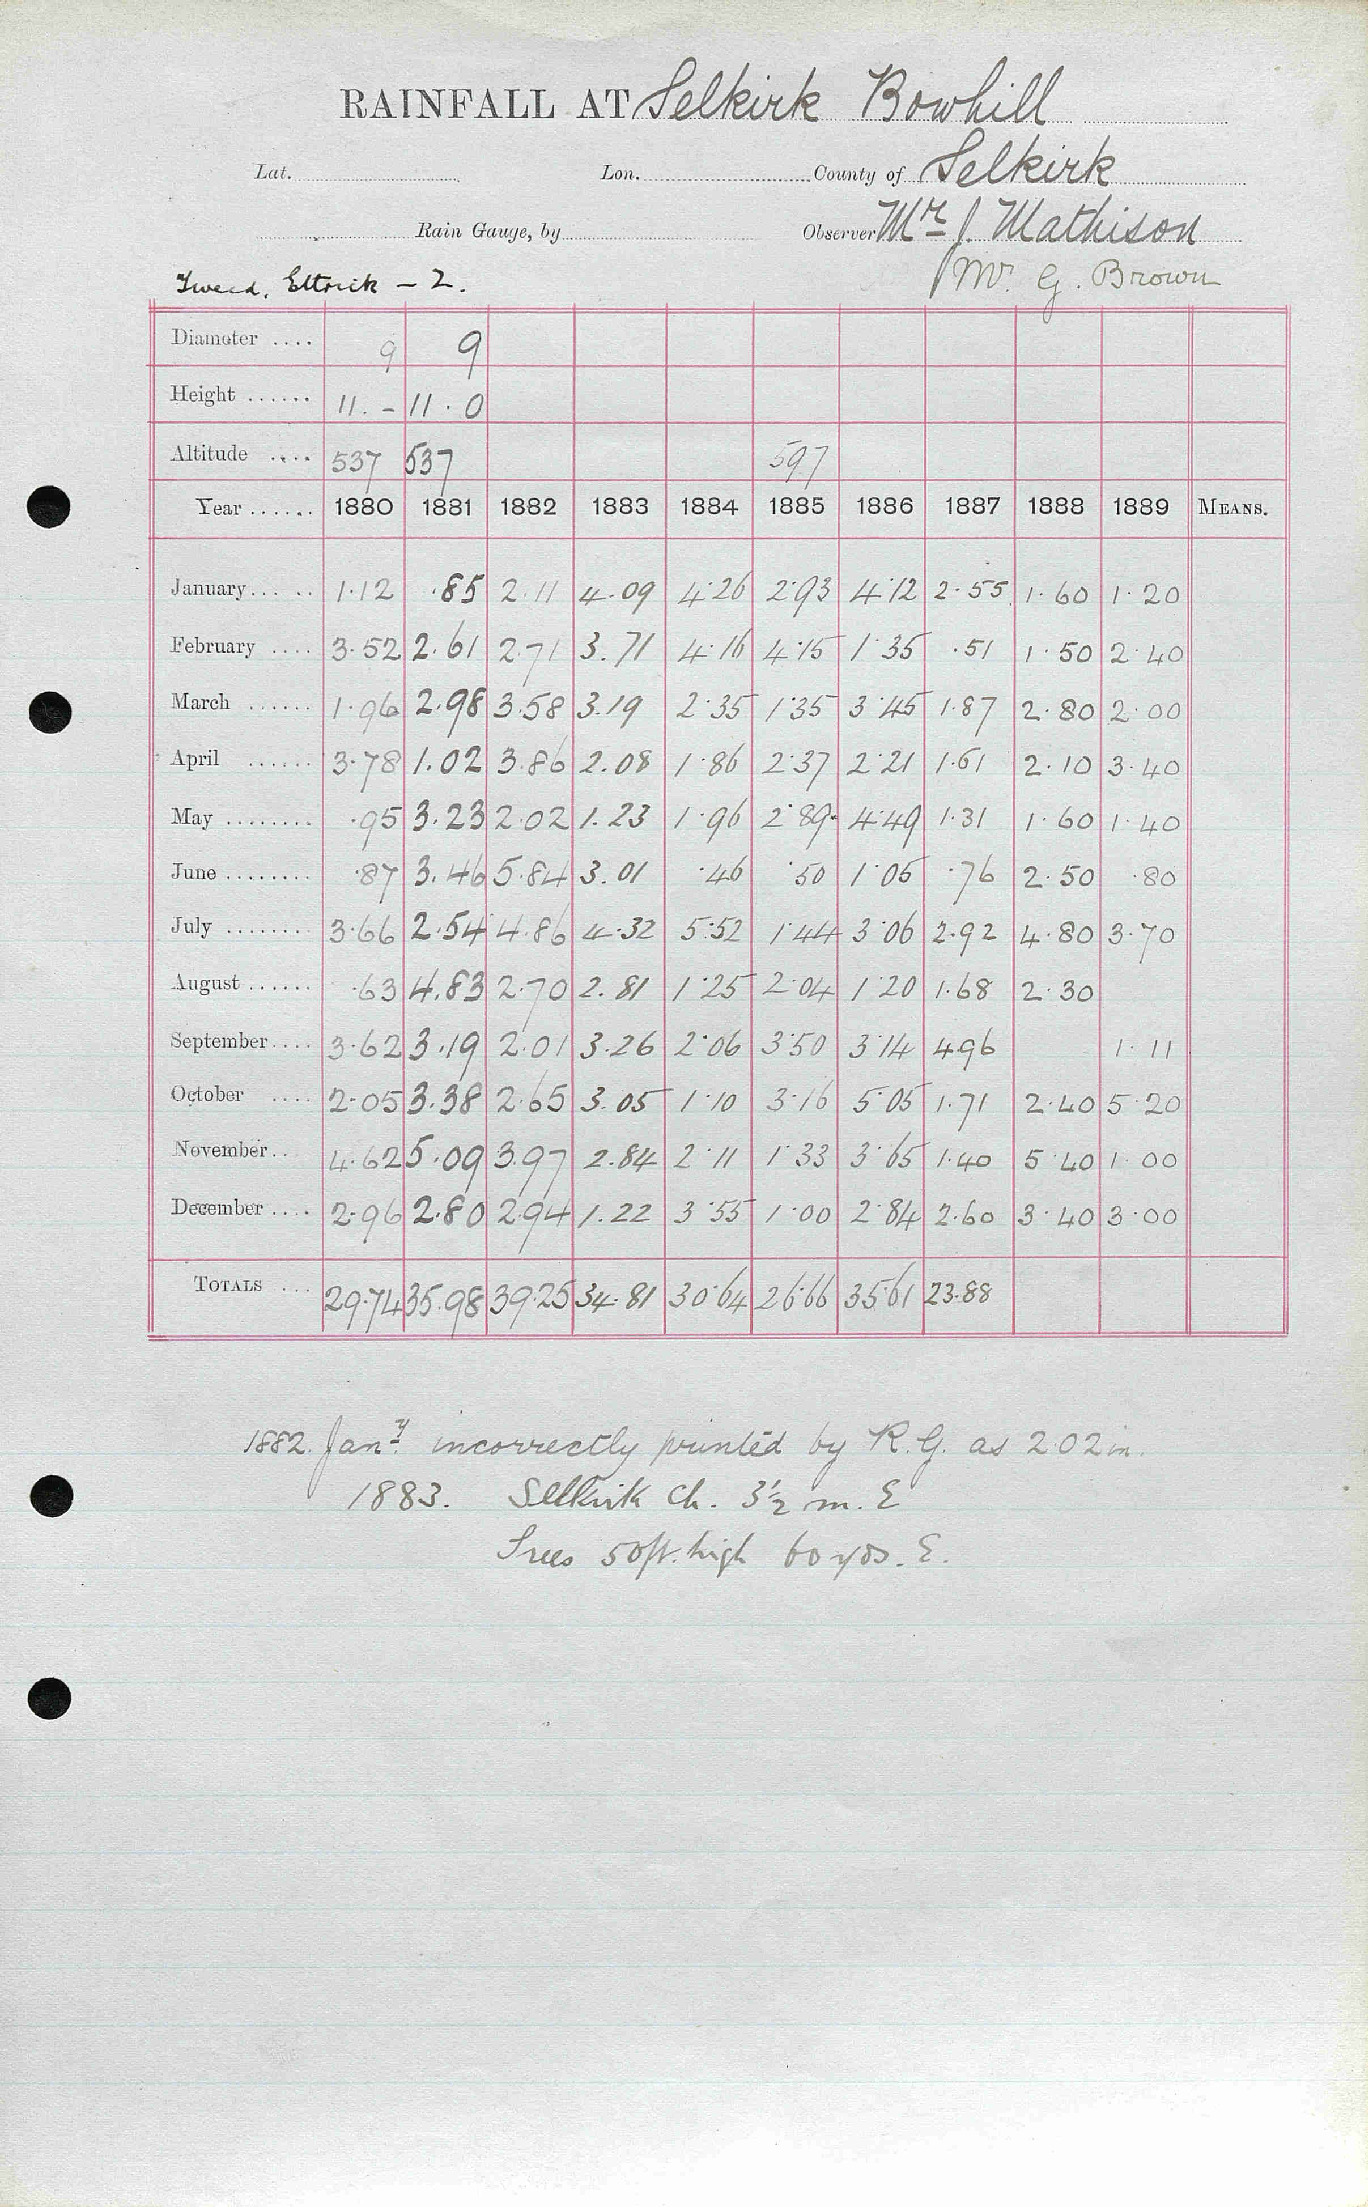 RAINFALL AT Selkirk Bowhill
Lat. Lon. County of Selkirk
Rain Gauge, by Observer Mr J. Mathison
Tweed, Ettrick – 2. Mr. G. Brown
Diameter .... 9 9
Height ...... 11. - 11.0
Altitude .... 537 537 597
Year ...... 1880 1881 1882 1883 1884 1885 1886 1887 1888 1889 MEANS.
January...... 1.12 .85 2.11 4.09 4.26 2.93 4.12 2.55 1.60 1.20
February .... 3.52 2.61 2.71 3.71 4.16 4.15 1.35 .51 1.50 2.40
March ...... 1.96 2.98 3.58 3.19 2.35 1.35 3.45 1.87 2.80 2.00
April ...... 3.78 1.02 3.86 2.08 1.86 2.37 2.21 1.61 2.10 3.40
May ........ .95 3.23 2.02 1.23 1.96 2.89 4.49 1.31 1.60 1.40
June ........ .87 3.46 5.84 3.01 .46 .50 1.05 .76 2.50 .80
July ........ 3.66 2.54 4.86 4.32 5.52 1.44 3.06 2.92 4.80 3.70
August ...... .63 4.83 2.70 2.81 1.25 2.04 1.20 1.68 2.30
September.... 3.62 3.19 2.01 3.26 2.06 3.50 3.14 4.96 1.11
October .... 2.05 3.38 2.65 3.05 1.10 3.16 5.05 1.71 2.40 5.20
November.. 4.62 5.09 3.97 2.84 2.11 1.33 3.65 1.40 5.40 1.00
December .... 2.96 2.80 2.94 1.22 3.55 1.00 2.84 2.60 3.40 3.00
TOTALS ... 29.74 35.98 39.25 34.81 30.64 26.66 35.61 23.88
1882. Jany. incorrectly printed by R.G. as 2.02 in.
1883. Selkirk Ch. 3½ m. E
Trees 50ft. high 60 yds. E.